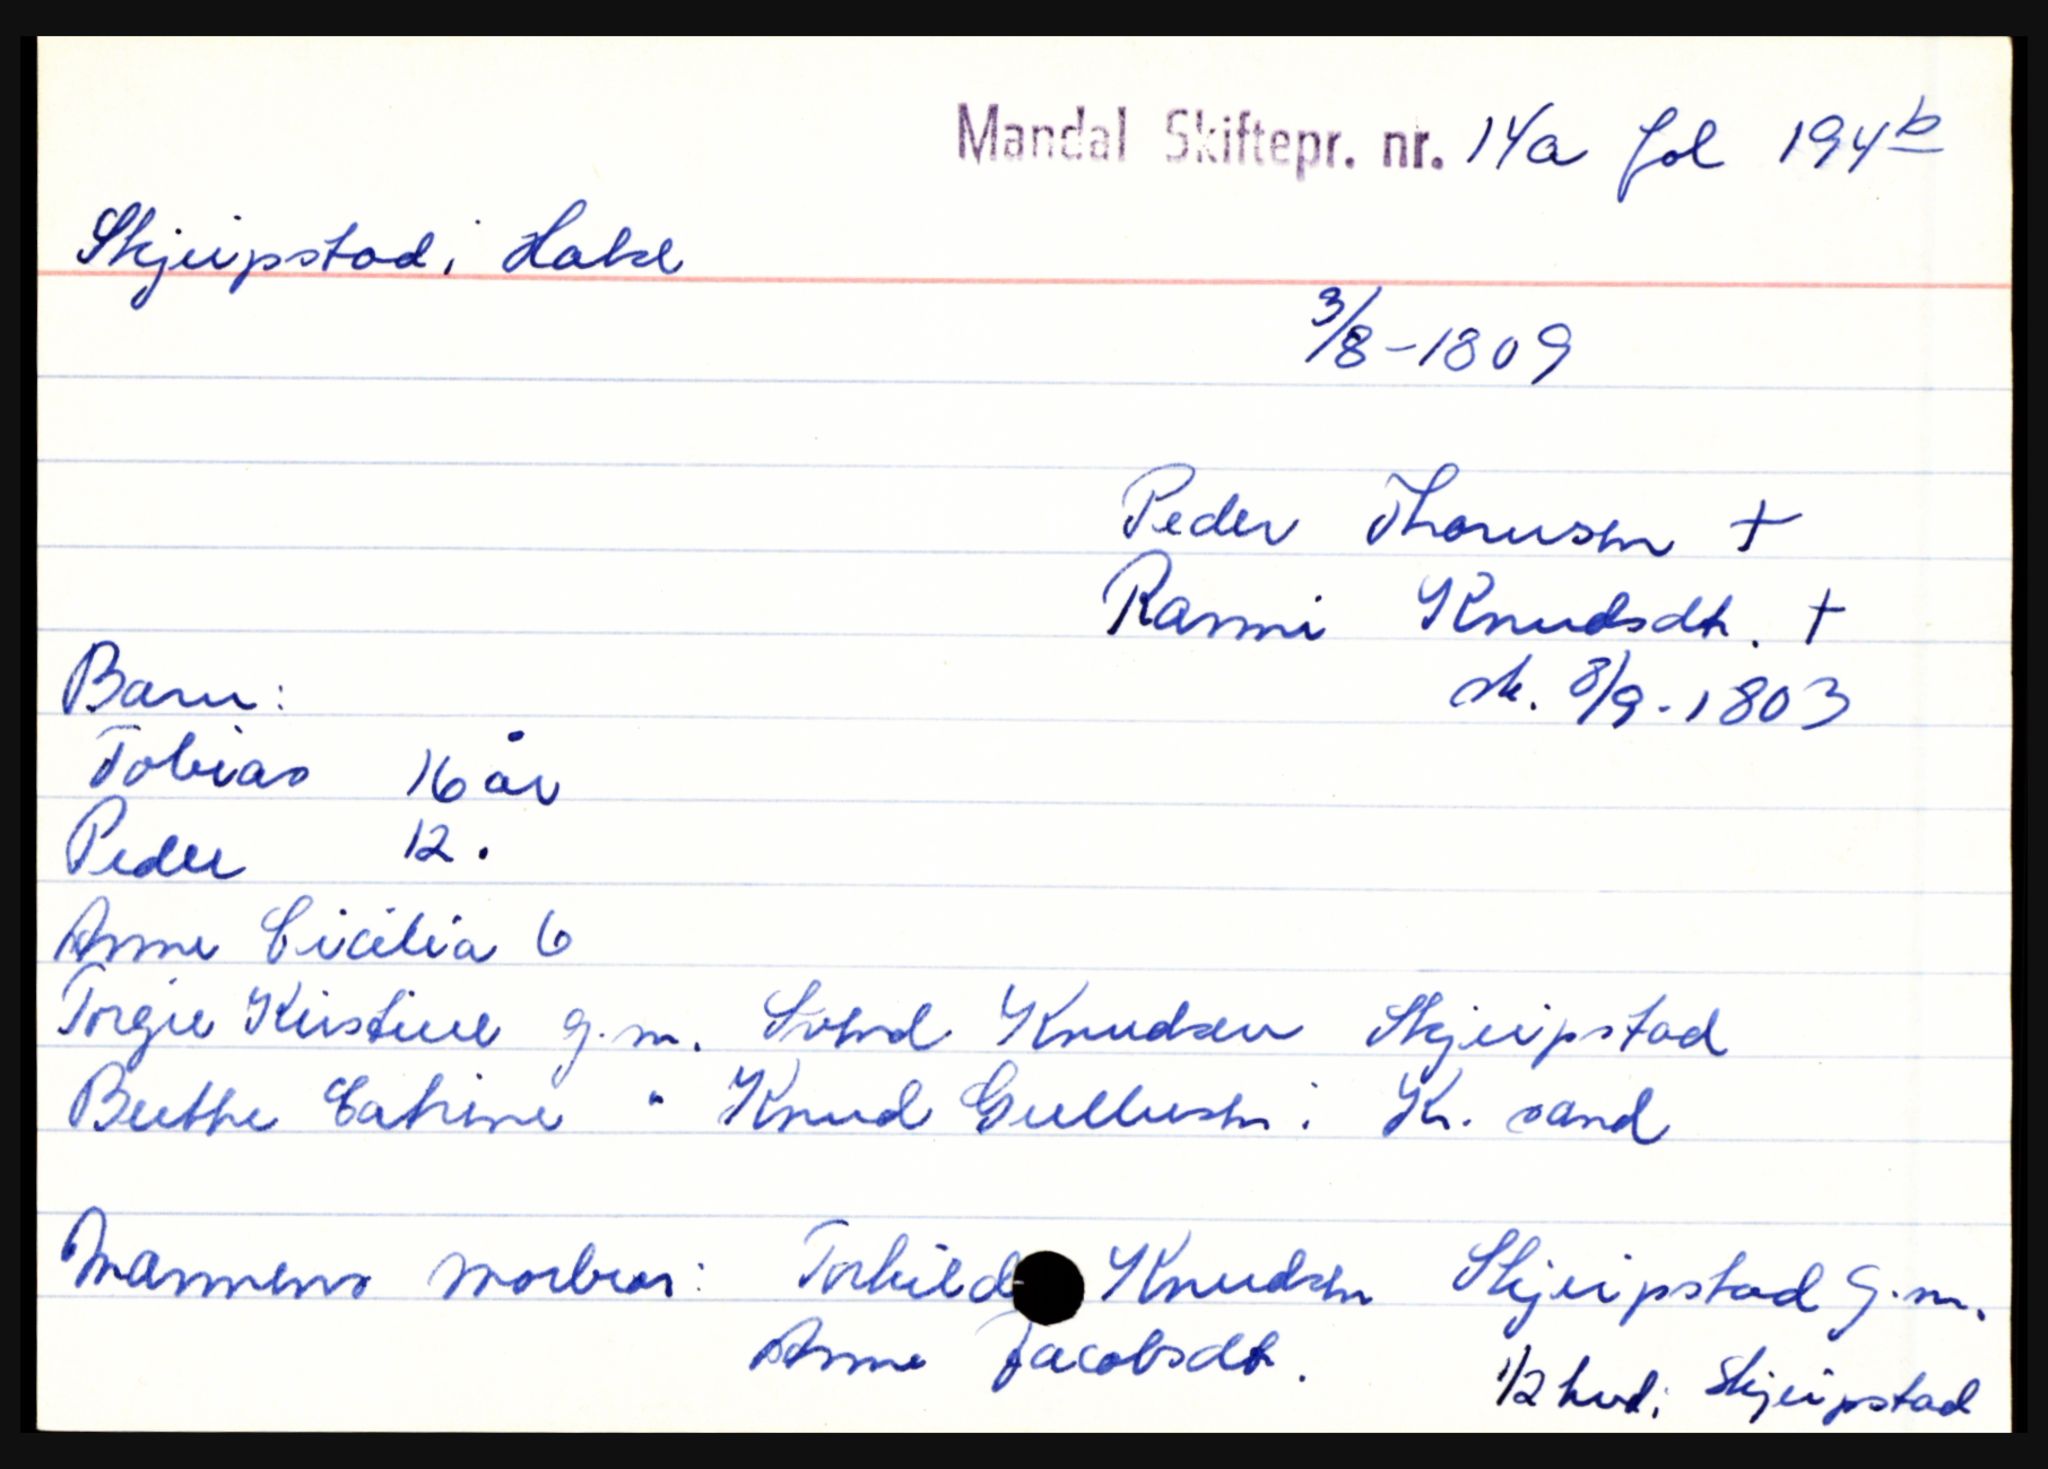 Mandal Skiftepr. nr. 14a fol 194b
Skjeipstad i Halse
3/8-1809
Peder Thorusen +
Ranni Knudsdtr. +
Barn:
sk. 8/9-1803
Tobias 16 år
Peder 12 "
Anne Cicilia 6
Torgie Kirstine g.m. Svend Knudsen Skjeipstad
Berthe Catrine " Knud Gullusen i Kr. sand
Mannens morbror: Torkild Knudsen Skjeipstad g.m.
Anne Jacobsdtr.
1/2 hud i Skjeipstad